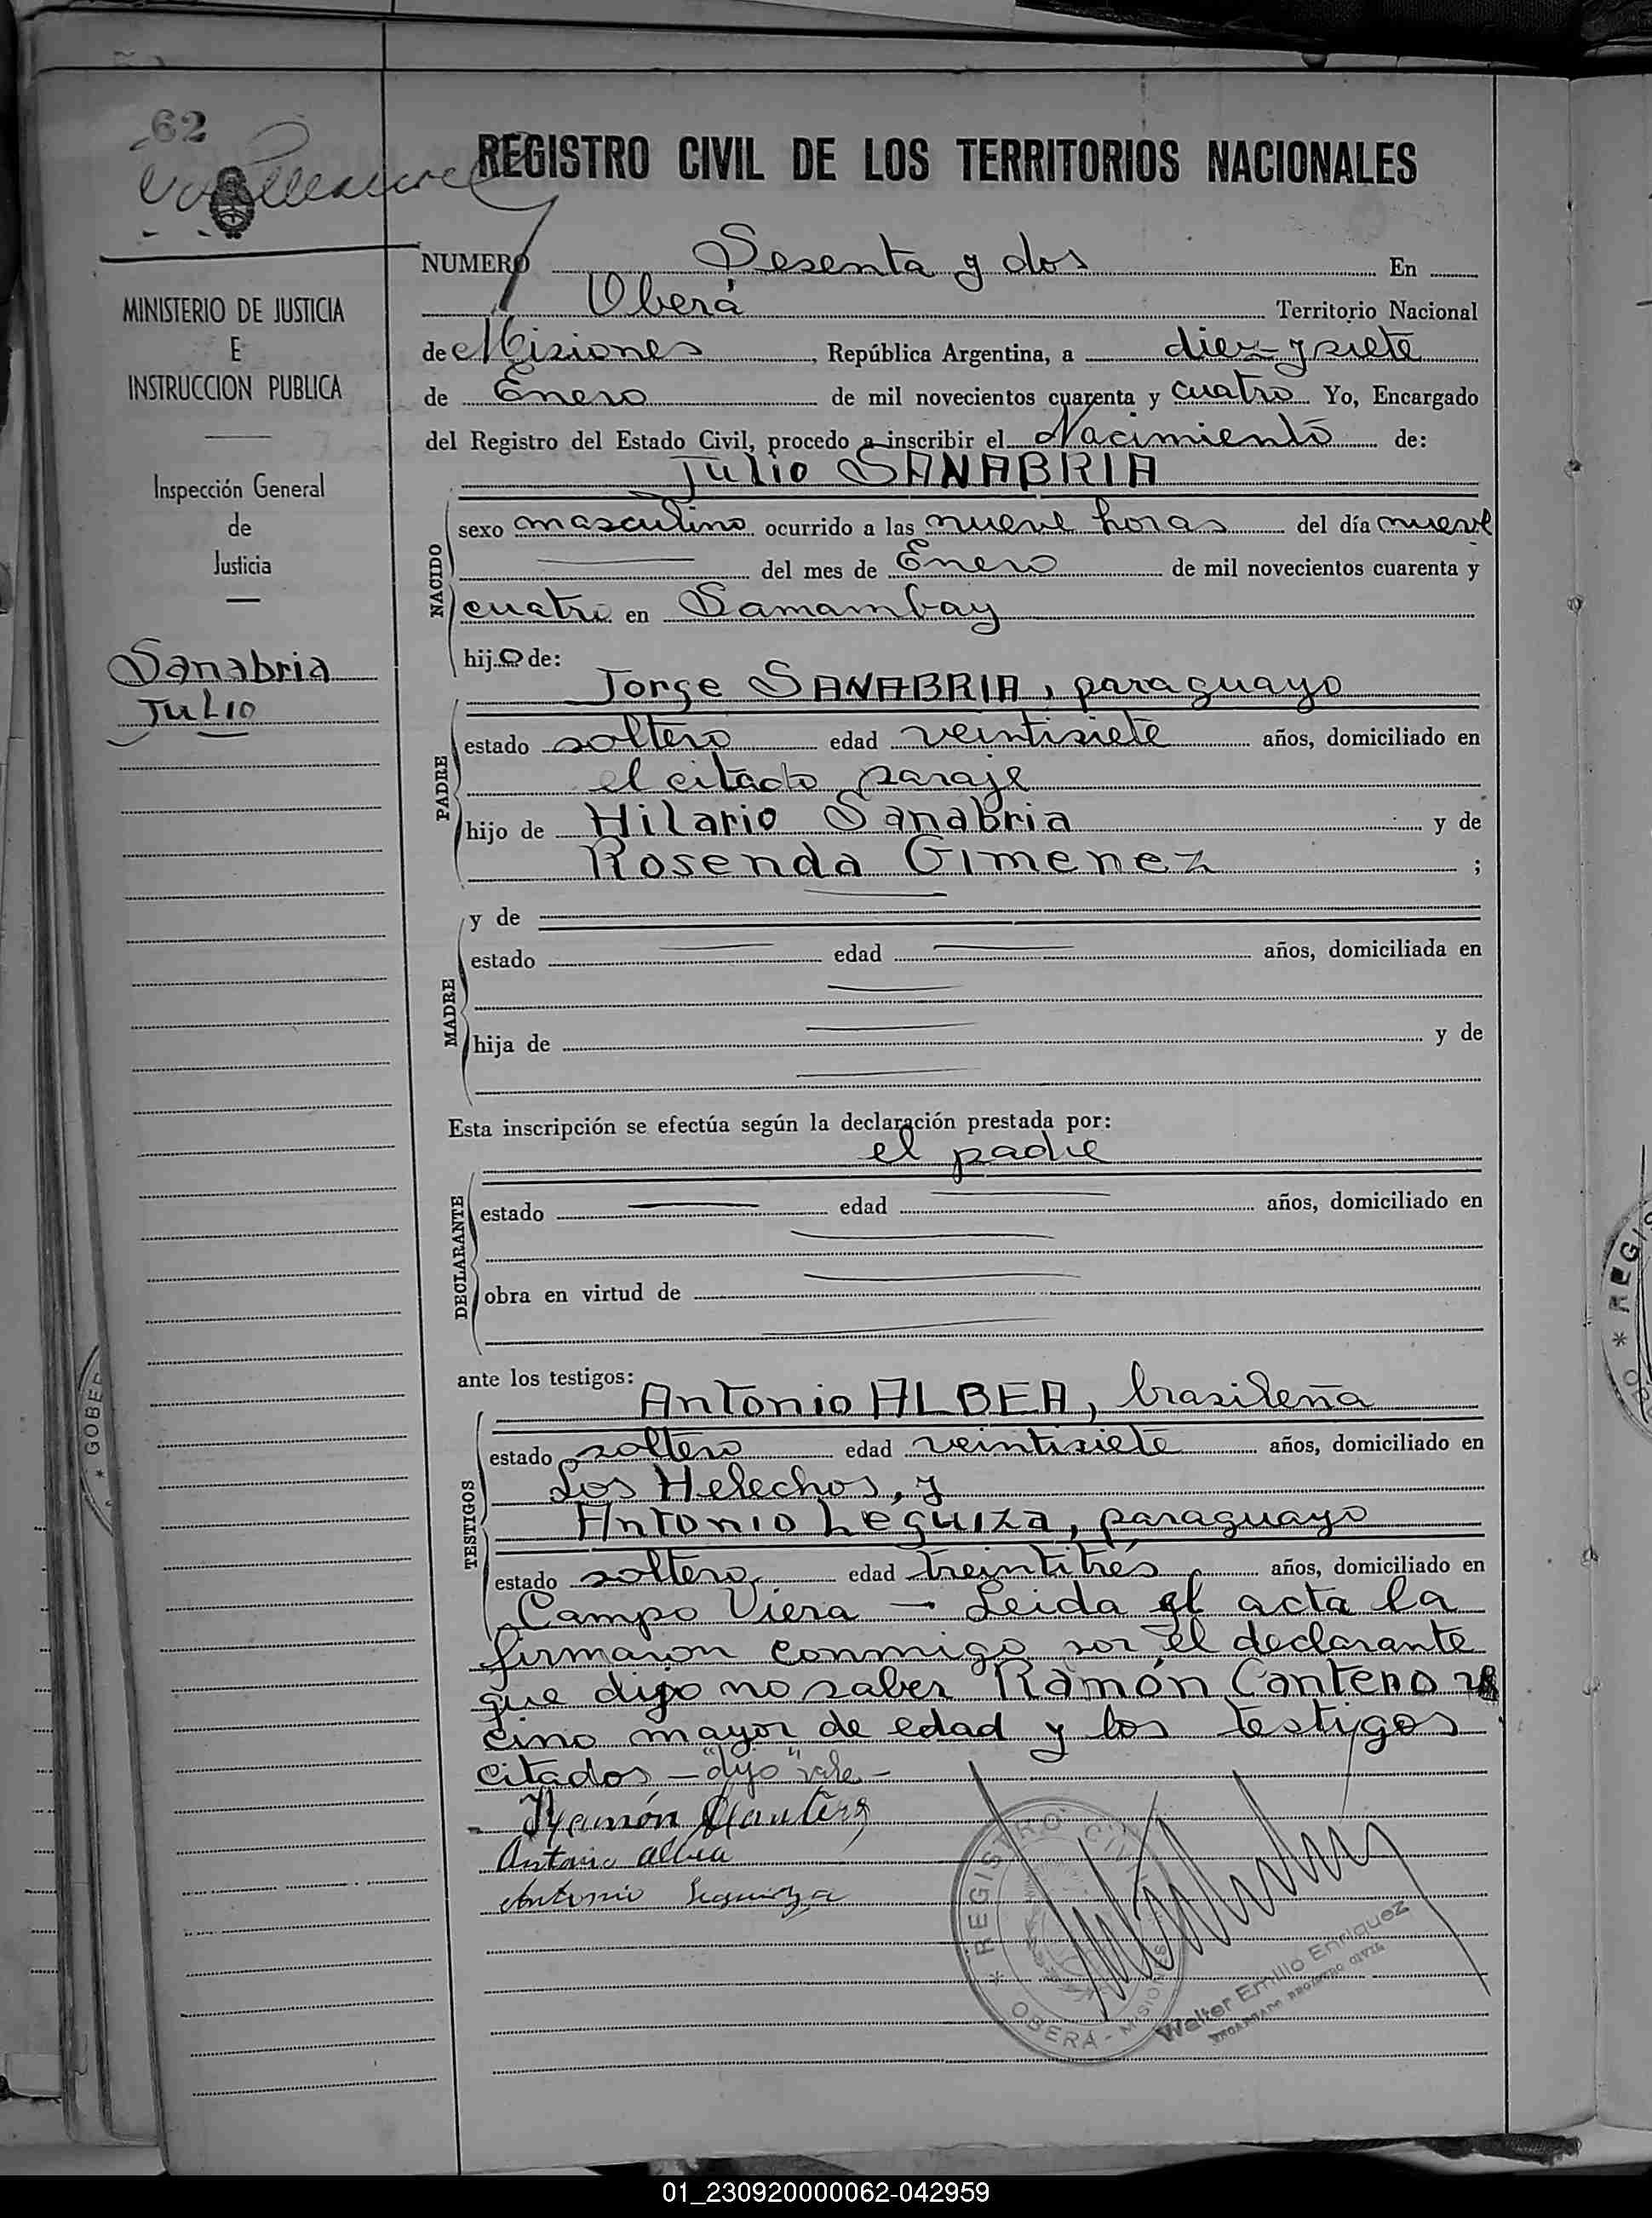 62
REGISTRO CIVIL DE LOS TERRITORIOS NACIONALES
NUMERO Sesenta y dos En
Oberá Territorio Nacional
de Misiones, República Argentina, a diez y siete
de Enero de mil novecientos cuarenta y cuatro Yo, Encargado
del Registro del Estado Civil, procedo a inscribir el Nacimiento de:
Julio SANABRIA
NACIDO
sexo masculino ocurrido a las nueve horas del día nueve
del mes de Enero de mil novecientos cuarenta y
cuatro en Samambay
hijo de:
PADRE
Jorge SANABRIA, paraguayo
estado soltero edad veintisiete años, domiciliado en
el citado paraje
hijo de Hilario Sanabria y de
Rosenda Gimenez ;
MADRE
y de
estado edad años, domiciliada en
hija de y de
Esta inscripción se efectúa según la declaración prestada por:
el padre
DECLARANTE
estado edad años, domiciliado en
obra en virtud de
ante los testigos:
TESTIGOS
Antonio ALBEA, brasileña
estado soltero edad veintisiete años, domiciliado en
Los Helechos, y
Antonio Leguiza, paraguayo
estado soltero edad treintitrés años, domiciliado en
Campo Viera — Leida el acta la
firmaron conmigo por el declarante
que dijo no saber Ramón Cantero ve
cino mayor de edad y los testigos
citados — "dijo" vale —
Ramón Cantero
Antonio Albea
Antonio Leguiza
REGISTRO CIVIL
OBERÁ - MISIONES
Walter Emilio Enriquez
ENCARGADO REGISTRO CIVIL
MINISTERIO DE JUSTICIA
E
INSTRUCCION PUBLICA
Inspección General
de
Justicia
Sanabria
Julio
GOBER
REGIS
01_230920000062-042959